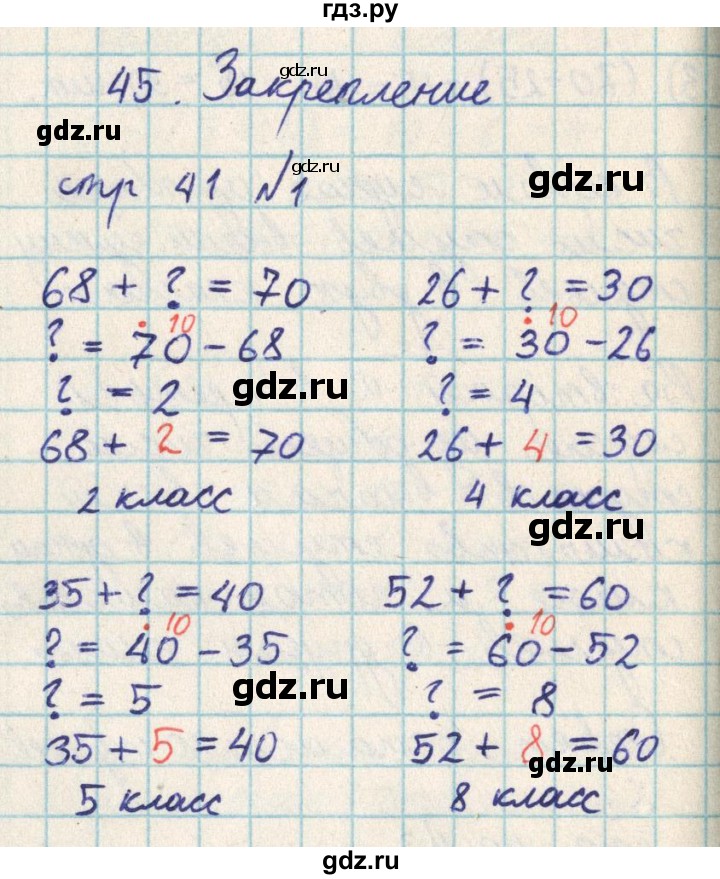 гдз.ру
45. Закрепление
gdz.ru
gdz.ru
стр 41 №1
gdz.ru
gdz.ru
68 + ? = 70
10
? = 70 - 68
? = 2
gdz.ru
68 + 2 = 70
2 класс
26 + ? = 30
10
? = 30 - 26
? = 4
26 + 4 = 30
4 класс
gdz.ru
35 + ? = 40
10
? = 40 - 35
? = 5
gdz.ru
35 + 5 = 40
5 класс
52 + ? = 60
10
? = 60 - 52
? = 8
52 + 8 = 60
gdz.ru
8 класс
gdz.ru
gdz.ru